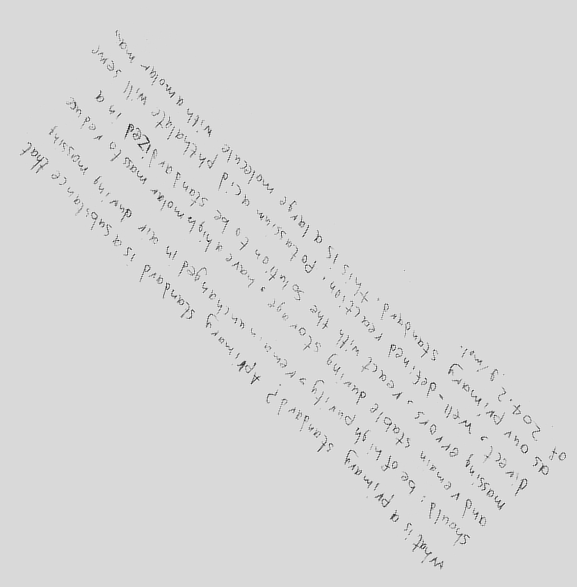 What is a primary standard? A primary standard is a substance that
should: be of high purity, remain unchanged in air during massing
and remain stable during storage, have a high molar mass to reduce
massing errors, react with the solution to be standardized in a
direct, well-defined reaction. Potassium acid phthalate will serve
as our primary standard. This is a large molecule with a molar
of 204.2 g/mol.